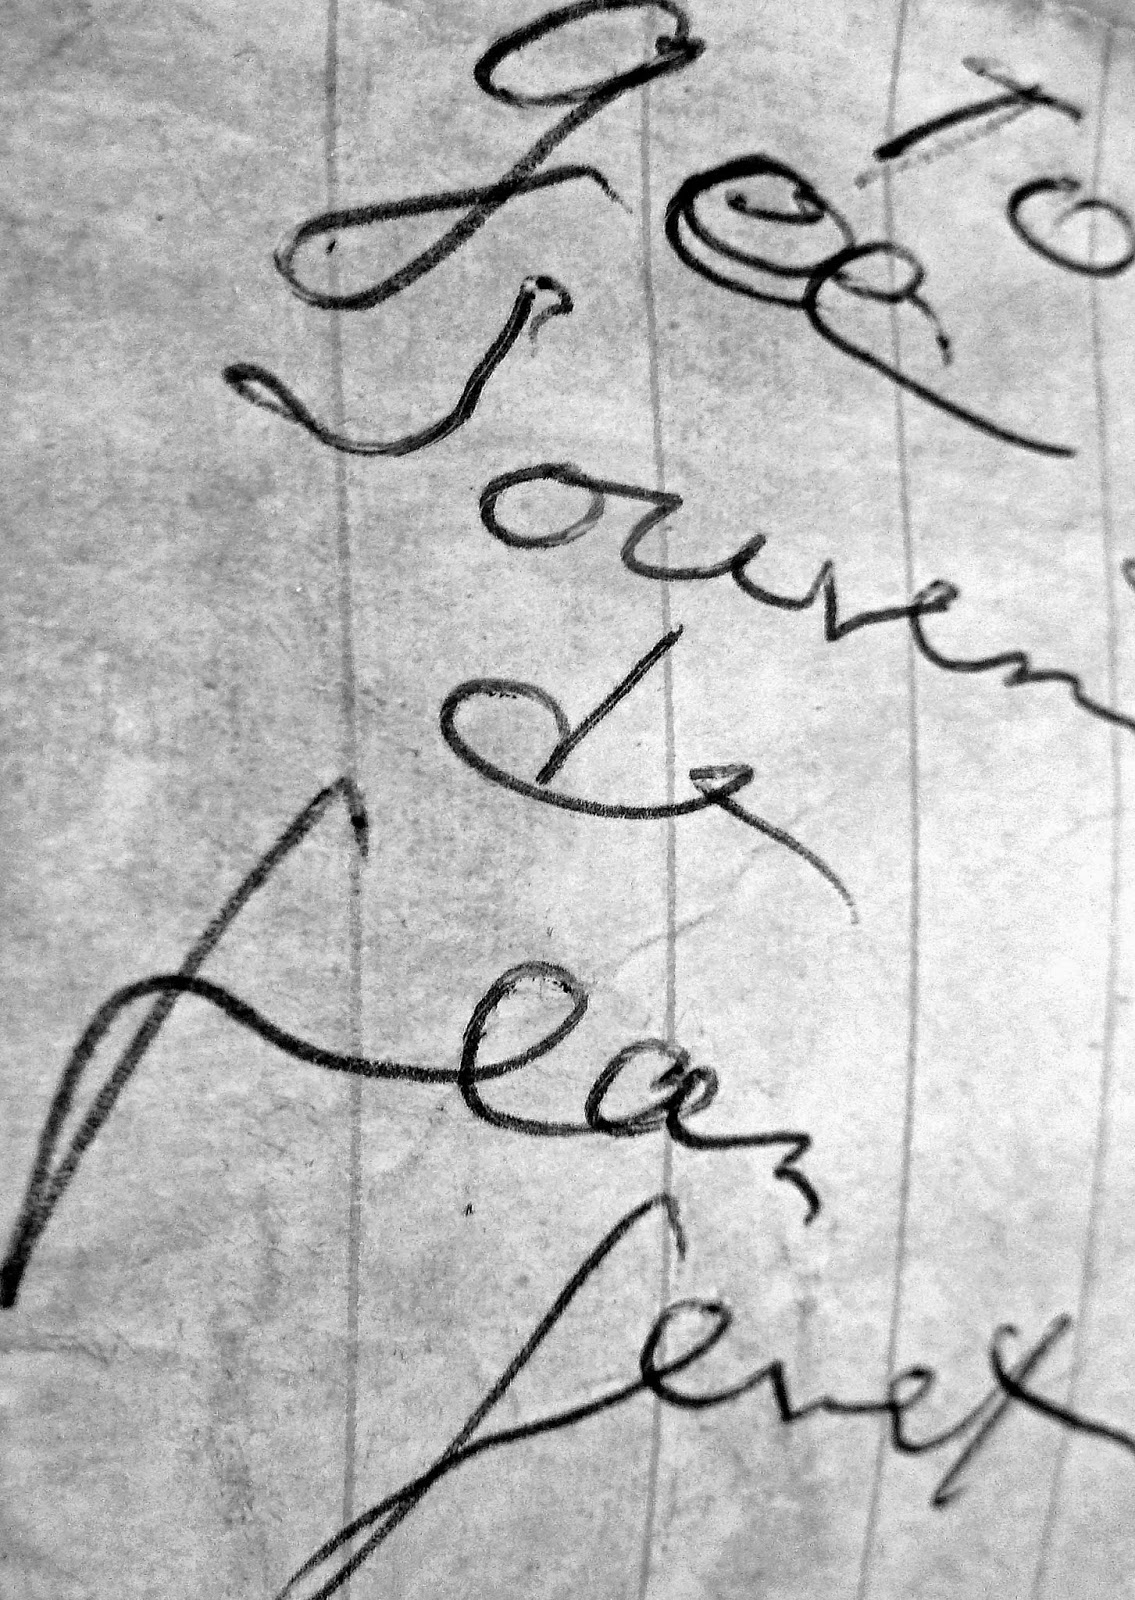 To
Joe
Souven
de
Jean
Genet